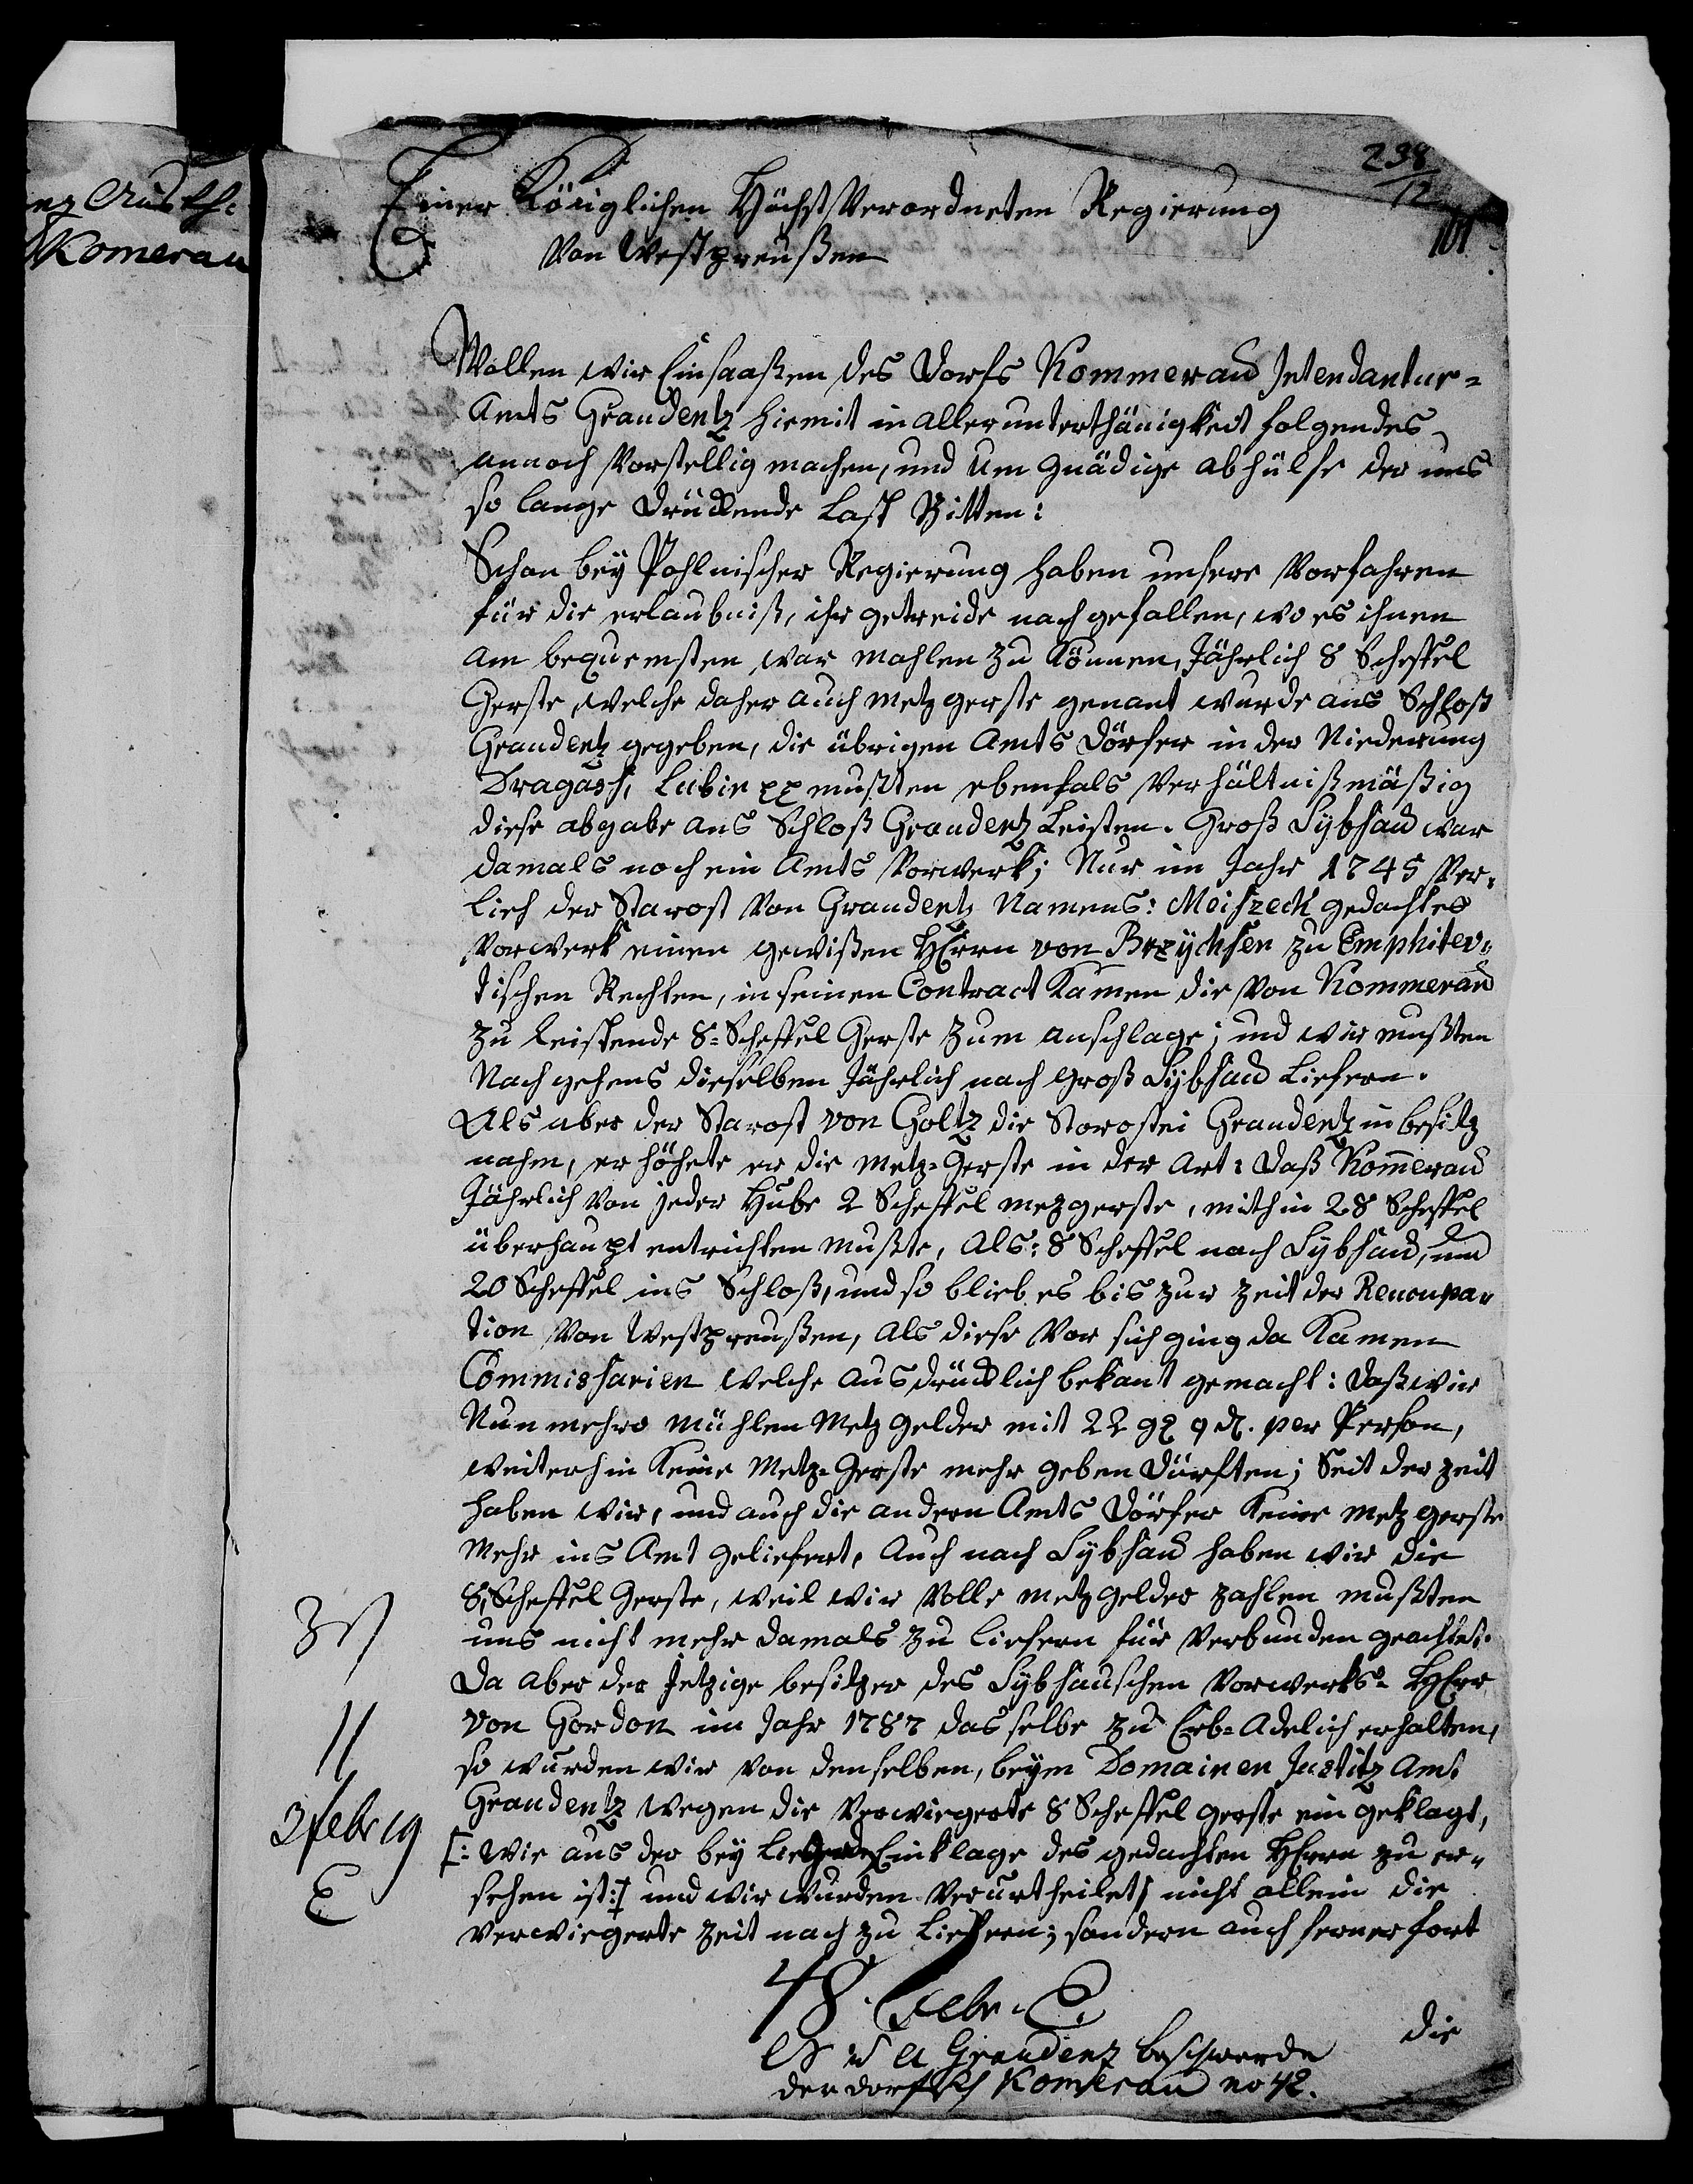 Komerau
238
12
101
Einer Königlichen HöchstVerordneten Regierung
Von Westpreußen
Wollen wir Einsaaßen des Dorfs Kommerau Intendantur-
Amts Graudentz hiemit in allerunterthänigkeit folgendes
annoch Vorstellig machen, und um gnädige abhülfe der uns
so lange drückende Last Bitten:
Schon bey Pohlnischer Regierung haben unsere Vorfahren
für die erlaubniß, ihr getreide nach gefallen, wo es ihnen
am bequemsten war mahlen zu können, Jährlich 8 Scheffel
Gerste, welche daher auch metz gerste genant wurde ans Schloß
Graudentz gegeben, die übrigen Amts Dörfer in der Niederung
Dragass, Lubin pp mußten ebenfals Verhältnißmäßig
diese abgabe ans Schloß Graudentz Leisten. Groß Sybsau war
damals noch ein Amts Vorwerk; Nur im Jahr 1745 Ver-
lieh der Starost Von Graudentz Namens: Moiszeck gedachtes
Vorwerk einen gewißen HErrn von Brzychsen zu Emphitev-
tischen Rechten, in seinen Contract kamen die Von Kommerau
zu leistende 8 Scheffel Gerste zum anschlage; und wir mußten
Nach gehens dieselben Jährlich nach Groß Sybsau Liefern.
Als aber der Starost von Goltz die Starostei Graudentz in besitz
nahm, er höhete er die Metz-Gerste in der Art: daß Kom̄erau
Jährlich Von jeder Hube 2 Scheffel metzgerste, mithin 28 Scheffel
überhaupt entrichten mußte, Als: 8 Scheffel nach Sybsau, und
20 Scheffel ins Schloß, und so blieb es bis zur zeit der Reoccupa-
tion Von Westpreußen, Als diese Vor sich ging da kamen
Commissarien welche ausdrücklich bekant gemacht: daß wir
Nun mehro mühlen Metz gelder mit 22 gr 9 d. per Person,
weiterhin keine Metz-Gerste mehr geben dürften; Seit der zeit
haben wir, und auch die andern Amts Dörfer keine metz gerste
Mehr ins Amt geliefert, Auch nach Sybsau haben wir die
8, Scheffel Gerste, weil wir Volle metz gelder zahlen mußten
uns nicht mehr damals zu liefern für Verbunden geachtet.
Da aber der jetzige besitzer des Sybsauschen Vorwerks HErr
von Gordon im Jahr 1787 dasselbe zu Erb-Adelich erhalten,
so wurden wir von denselben, beym Domainen Justitz Amt
Graudentz wegen die Verwiegerte 8 Scheffel gerste ein geklagt,
[: wie aus der bey liegende Einklage des gedachten HErrn zu er-
sehen ist:] und wir wurden Verurtheilet, nicht allein die
verwiegerte zeit nach zu Liefern; sondern auch ferner fort
die
3 febr 19
E
48. Febr. E.
Graudenz beschwerde
der dorfsch Komerau no 42.